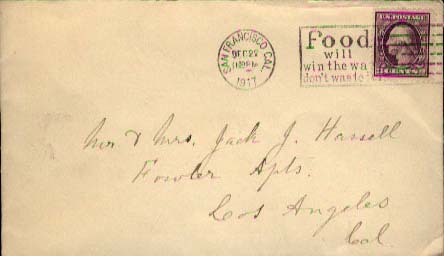 SAN FRANCISCO, CAL.
DEC 22
1917
Food
will
win the wa
don't waste
U.S. POSTAGE
Mr & Mrs. Jack J. Hassell
Fowler Apts.
Los Angeles
Cal.